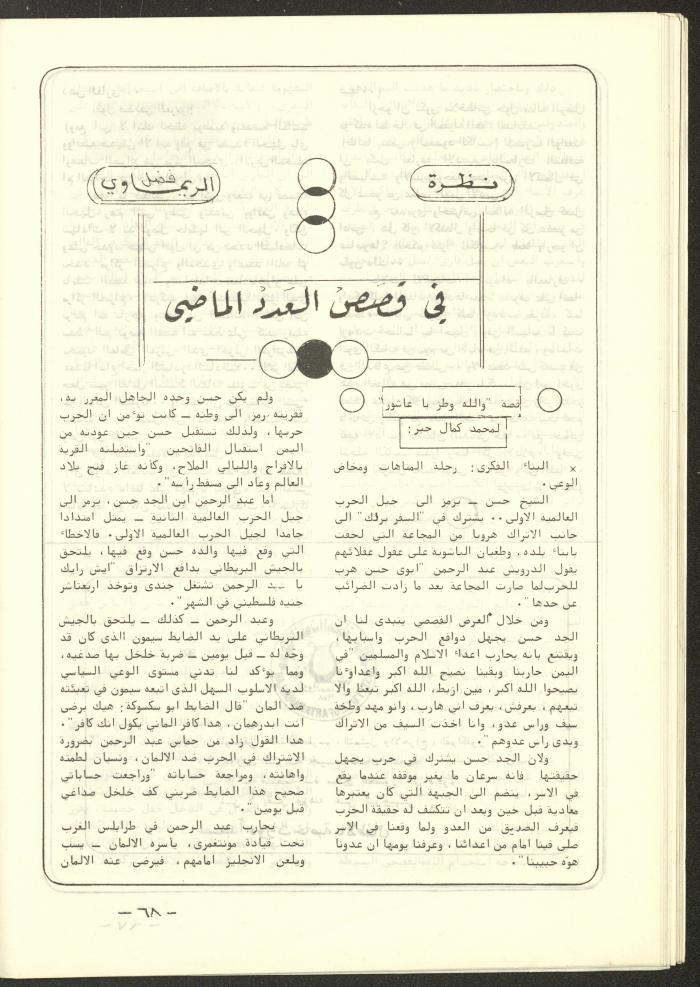 نظرة
فضل
الريماوي
في قصص العدد الماضي
قصة "والله وطز يا عاشور"
لمحمد كمال جبر:
× البناء الفكري: رحلة المتاهات ومخاض
الوعي.
الشيخ حسن ــ يرمز الى جيل الحرب
العالمية الاولى.. يشترك في "السفر برلك" الى
جانب الاتراك هروبا من المجاعة التي لحقت
بابناء بلده، وطغيان الباشوية على عقول عقلائهم
يقول الدرويش عبد الرحمن "ابوي حسن هرب
للحرب لما صارت المجاعة بعد ما زادت الضرائب
عن حدها".
ومن خلال العرض القصصي يتبدى لنا ان
الجد حسن يجهل دوافع الحرب واسبابها،
ويقتنع بانه يحارب اعداء الاسلام والمسلمين "في
اليمن حاربنا وبقينا نصيح الله اكبر واعداؤنا
يصيحوا الله اكبر، مين ازبط، الله اكبر تبعنا والا
تبعهم، يعرفش، يعرف اني هارب، وانو مهد وطخة
سيف وراس عدو، وانا اخذت السيف من الاتراك
وبدى راس عدوهم".
ولان الجد حسن يشترك في حرب يجهل
حقيقتها فانه سرعان ما يغير موقفه عندما يقع
في الاسر، ينضم الى الجبهة التي كان يعتبرها
معادية قبل حين وبعد ان تتكشف له حقيقة الحرب
فيعرف الصديق من العدو ولما وقعنا في الاسر
صلى فينا امام من اعدائنا، وعرفنا يومها ان عدونا
هوّه حبيبنا".
ولم يكن حسن وحده الجاهل المغرر به،
فقريته رمز الى وطنه ــ كانت تؤمن ان الحرب
حربها، ولذلك تستقبل حسن حين عودته من
اليمن استقبال الفاتحين "واستقبلته القرية
بالافراح والليالي الملاح، وكانه غاز فتح بلاد
العالم وعاد الى مسقط رأسه".
اما عبد الرحمن ابن الجد حسن، يرمز الى
جيل الحرب العالمية الثانية ــ يمثل امتدادا
جامدا لجيل الحرب العالمية الاولى. فالاخطاء
التي وقع فيها والده حسن وقع فيها، يلتحق
بالجيش البريطاني بدافع الارتزاق "ايش رايك
يا عبد الرحمن تشتغل جندي وتوخذ اربعتاشر
جنيه فلسطيني في الشهر".
وعبد الرحمن ــ كذلك ــ يلتحق بالجيش
البريطاني على يد الضابط سيمون الذي كان قد
وجه له ــ قبل يومين ــ ضربة خلخل بها صدغيه،
ومما يؤكد لنا تدني مستوى الوعي السياسي
لديه الاسلوب السهل الذي اتبعه سيمون في تعبئته
ضد المان "قال الضابط ابو سكسوكة: هيك يرضى
انت ابدرهمان، هذا كافر الماني يكول انك كافر".
هذا القول زاد من حماس عبد الرحمن بضرورة
الاشتراك في الحرب ضد الالمان، ونسيان لطمته
واهانته، ومراجعة حساباته "وراجعت حساباتي
صحيح هذا الضابط ضربني كف خلخل صداغي
قبل يومين".
يحارب عبد الرحمن في طرابلس الغرب
تحت قيادة مونتغمري، ياسره الالمان ــ يسب
ويلعن الانجليز امامهم، فيرضى عنه الالمان
ــ ٦٨ ــ